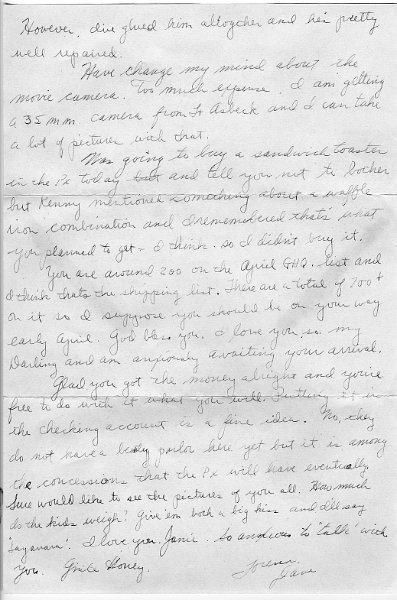 However, I've glued him altogether and he's pretty
well repaired.
Have change my mind about the
movie camera. Too much expense. I am getting
a 35 mm camera from Lt Asbeck and I can take
a lot of pictures with that.
Was going to buy a sandwich toaster
in the Px today but and tell you not to bother
but Kenny mentioned something about a waffle
iron combination and I remembered that's what
you planned to get - I think. So I didn't buy it.
You are around 200 on the April GHQ list and
I think that's the shipping list. There are a total of 700+
on it so I suppose you should be on your way
early April. God bless you. I love you so my
Darling and am anxiously awaiting your arrival.
Glad you got the money alright and you're
free to do with it what you will. Putting it in
the checking account is a fine idea. No, they
do not have a beauty parlor here yet but it is among
the concessions that the Px will have eventually.
Sure would like to see the pictures of you all. How much
do the kids weigh? Give 'em both a big kiss and I'll say
"Sayanara". I love you, Janie. So anxious to "talk" with
you. Write Honey.
Forever
Dave